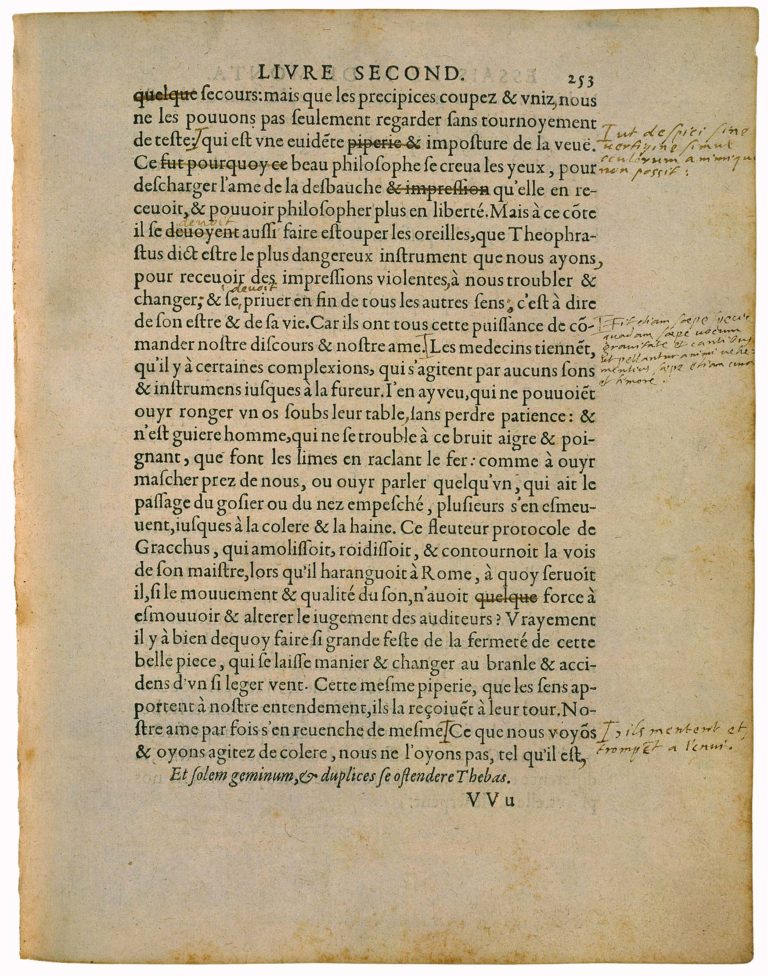 LIVRE SECOND. 253
quelque ſecours:mais que les precipices coupez & vniz,nous
ne les pouuons pas ſeulement regarder ſans tournoyement
de teſte:⌈qui eſt vne euidẽte piperie & impoſture de la veuë.
⌈ut deſpici ſine
vertigine ſimul
oculorum animique
non poſſit:
Ce fut pourquoy ce beau philoſophe ſe creua les yeux, pour
deſcharger l'ame de la deſbauche & impreſſion qu'elle en re-
ceuoit,& pouuoir philoſopher plus en liberté.Mais à ce cõte
devoit
il ſe deuoyent auſſi faire eſtouper les oreilles,que Theophra-
ſtus dict eſtre le plus dangereux inſtrument que nous ayons,
pour receuoir des impreſſions violentes,à nous troubler &
devoit
changer; & ſe priuer en fin de tous les autres ſens, c'eſt à dire
de ſon eſtre & de ſa vie.Car ils ont tous cette puiſſance de cõ-
mander noſtre diſcours & noſtre ame.⌈Les medecins tiennẽt,
⌈Fit etiam ſæpe ſpecie
quadam ſæpe vocum
gravitate et cantibus
ut pellantur animi vehe-
mentius ſæpe etiam cura
et timore.
qu'il y à certaines complexions, qui s'agitent par aucuns ſons
& inſtrumens iuſques à la fureur.I'en ay veu,qui ne pouuoiẽt
ouyr ronger vn os ſoubs leur table,ſans perdre patience: &
n'eſt guiere homme,qui ne ſe trouble à ce bruit aigre & poi-
gnant, que font les limes en raclant le fer: comme à ouyr
maſcher prez de nous, ou ouyr parler quelqu'vn, qui ait le
paſſage du goſier ou du nez empeſché, pluſieurs s'en eſmeu-
uent,iuſques à la colere & la haine. Ce fleuteur protocole de
Gracchus, qui amoliſſoit, roidiſſoit, & contournoit la vois
de ſon maiſtre,lors qu'il haranguoit à Rome, à quoy ſeruoit
il,ſi le mouuement & qualité du ſon,n'auoit quelque force à
eſmouuoir & alterer le iugement des auditeurs? Vrayement
il y à bien dequoy faire ſi grande feſte de la fermeté de cette
belle piece, qui ſe laiſſe manier & changer au branle & acci-
dens d'vn ſi leger vent. Cette meſme piperie, que les ſens ap-
portẽt à noſtre entendement,ils la reçoiuẽt à leur tour.No-
ſtre ame par fois s'en reuenche de meſme⌈Ce que nous voyõs
⌈, ils mentent et
trompẽt a l'enui.
& oyons agitez de colere, nous ne l'oyons pas, tel qu'il eſt,
Et ſolem geminum,& duplices ſe oſtendere Thebas.
VVu